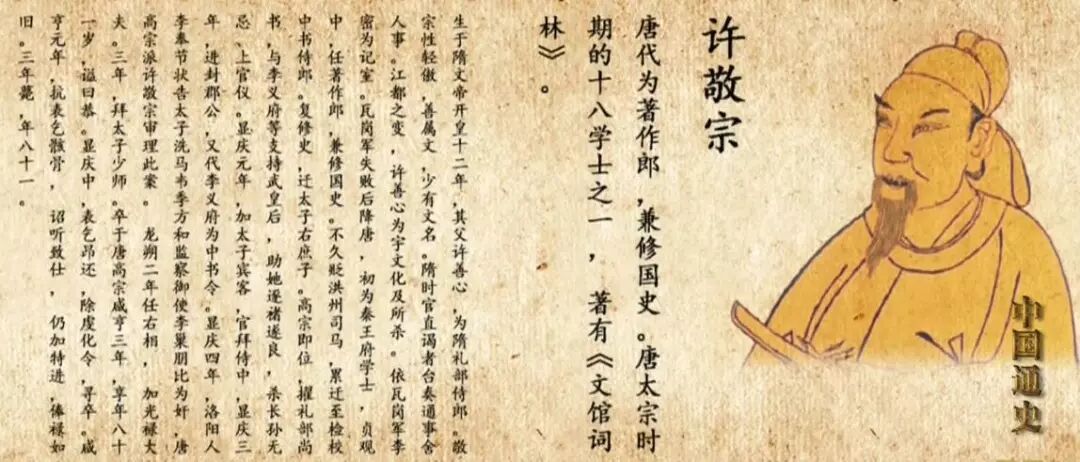 许敬宗
唐代为著作郎，兼修国史。唐太宗时
期的十八学士之一，著有《文馆词
林》。
生于隋文帝开皇十二年，其父许善心，为隋礼部侍郎。敬
宗性轻傲，善属文，少有文名。隋时官直谒者台奏通事舍
人事。江都之变，许善心为宇文化及所杀。依瓦岗军李
密为记室。瓦岗军失败后降唐，初为秦王府学士，贞观
中，任著作郎，兼修国史。不久贬洪州司马，累迁至检校
中书侍郎。复修史，迁太子右庶子。高宗即位，擢礼部尚
书，与李义府等支持武皇后，助她逐褚遂良，杀长孙无
忌、上官仪。显庆元年，加太子宾客，官拜侍中，显庆三
年，进封郡公，又代李义府为中书令。显庆四年，洛阳人
李奉节状告太子洗马韦季方和监察御使李巢朋比为奸，唐
高宗派许敬宗审理此案。 龙朔二年任右相，加光禄大
夫。三年，拜太子少师。卒于唐高宗咸亨三年，享年八十
一岁，谥曰恭。显庆中，表乞昂还，除虔化令，寻卒。咸
亨元年，抗表乞骸骨，诏听致仕，仍加特进，俸禄如
旧。三年薨，年八十一。
中国通史